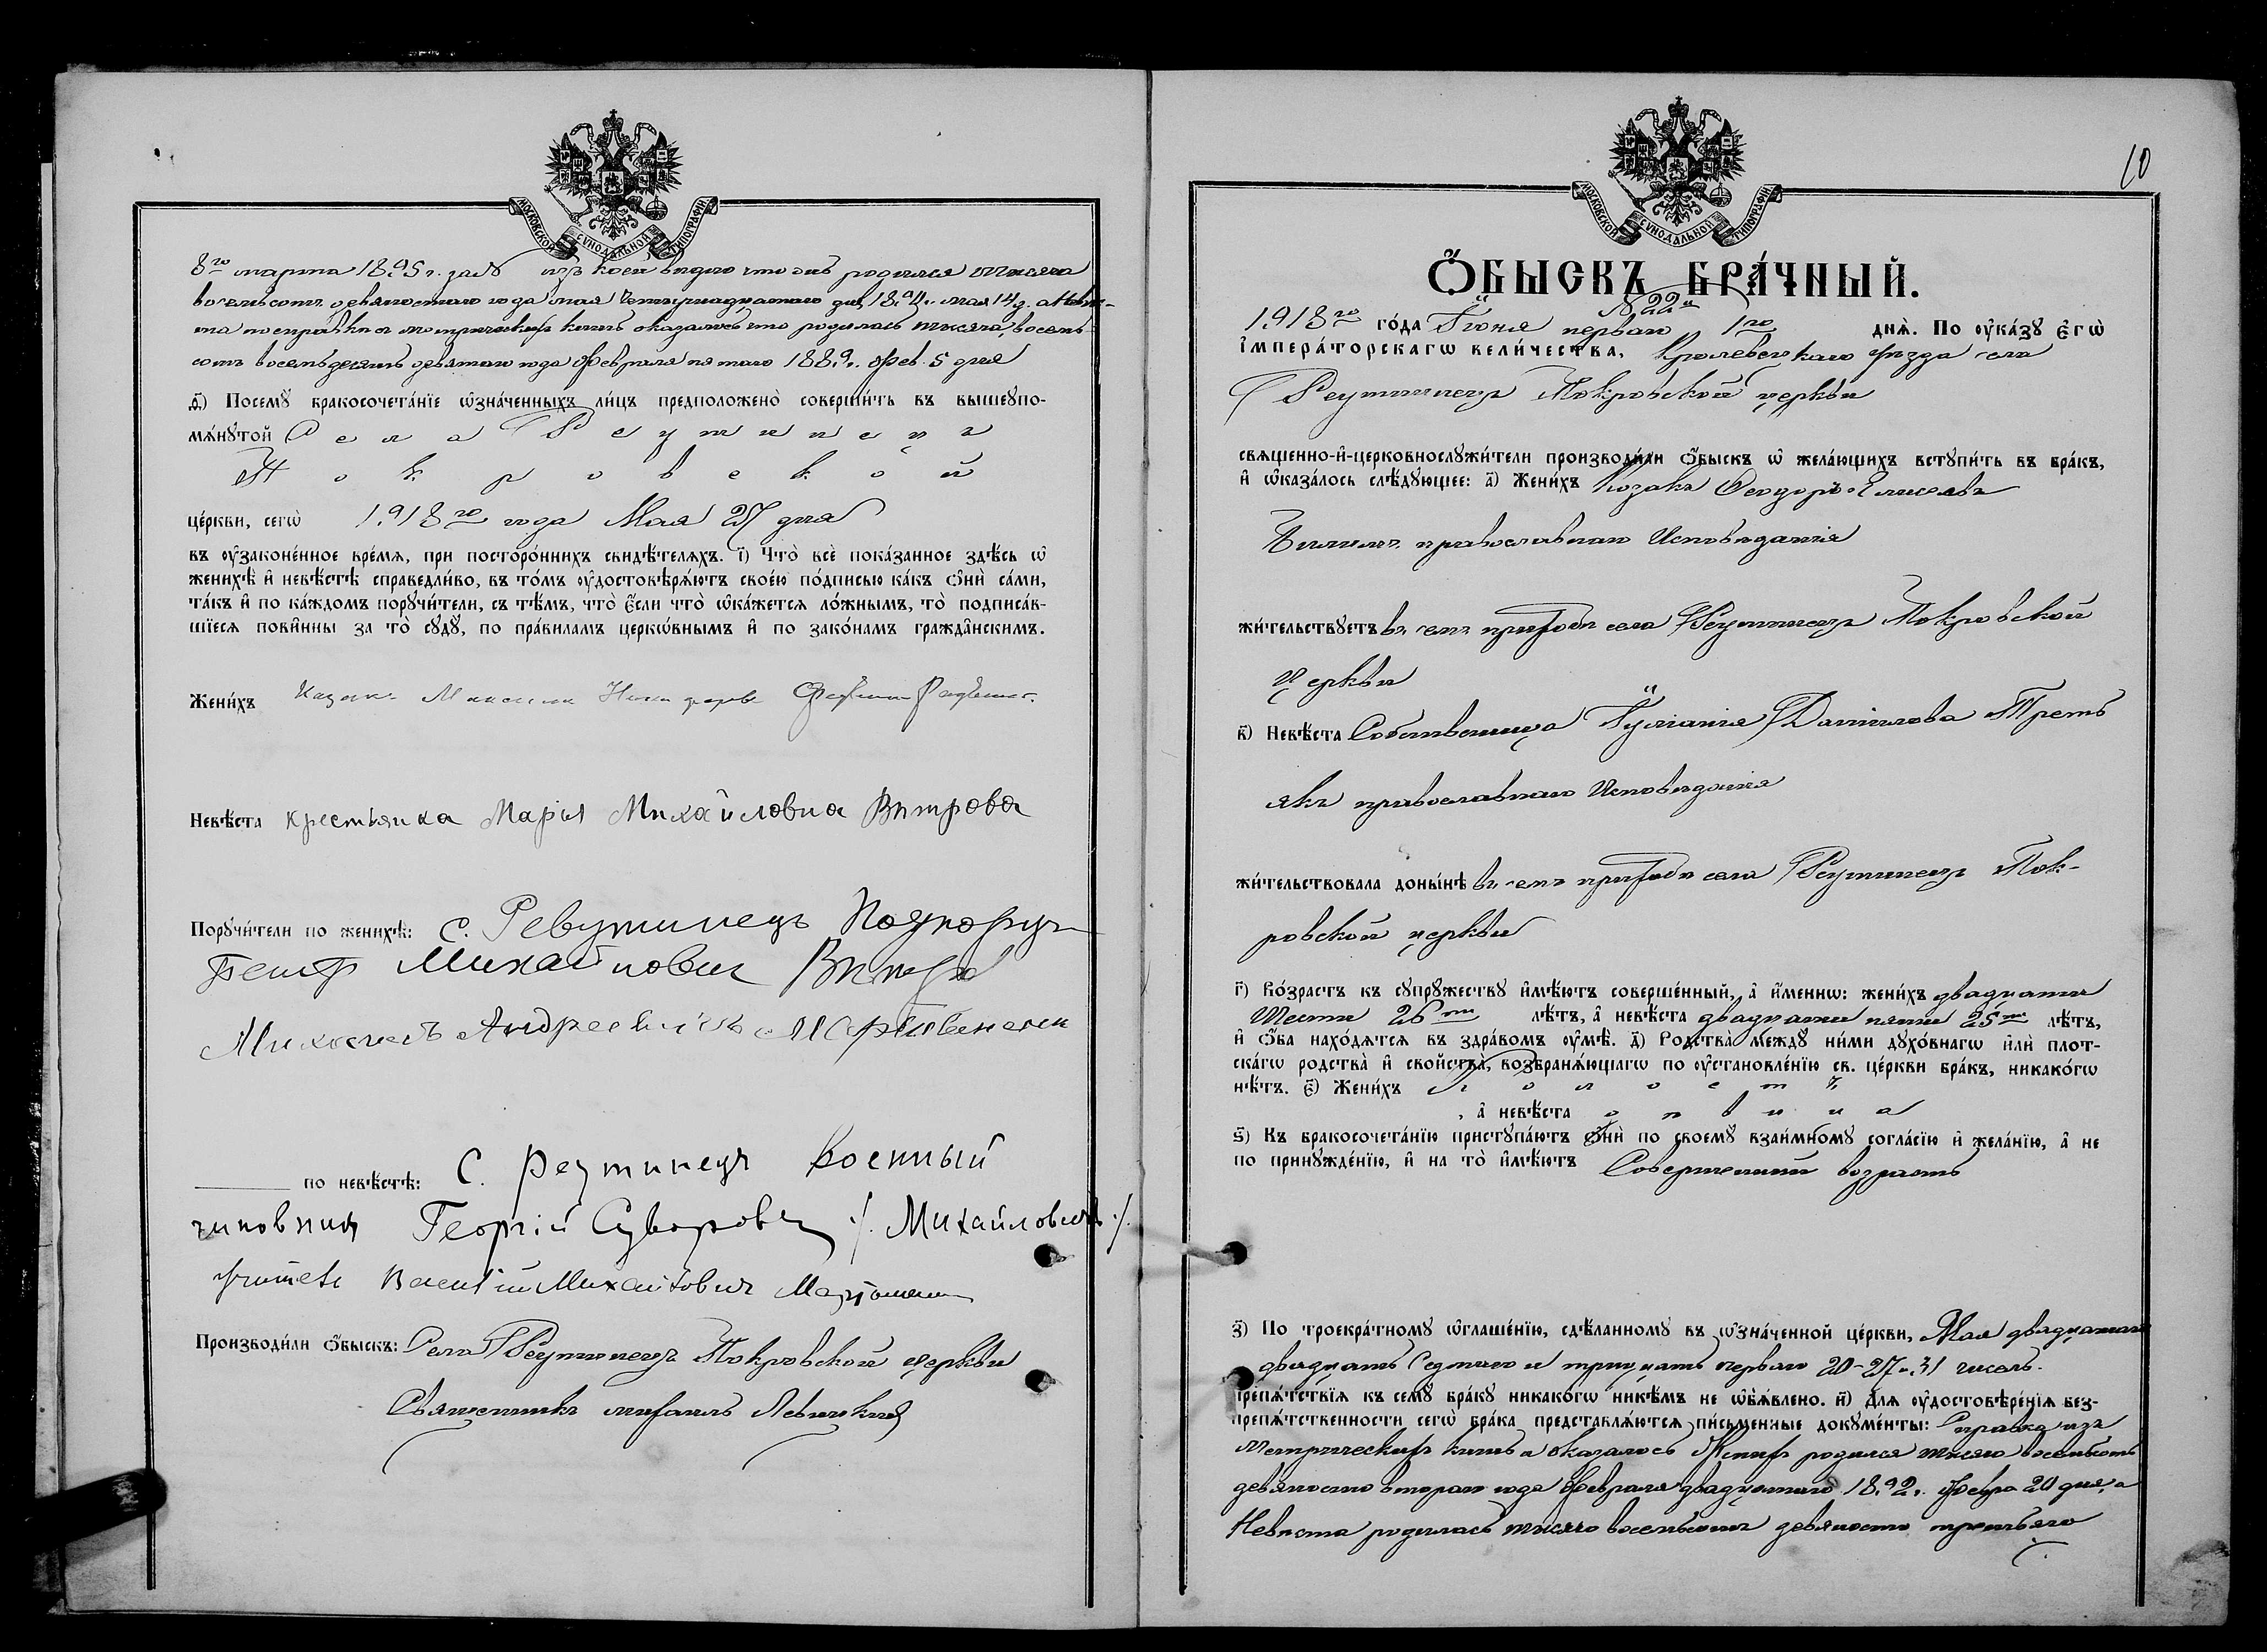 МОСКОВСКОЙ СѴНОДАЛЬНОЙ ТИПОГРАФІИ
8го марта 1895 г. за № изъ коей видно что онъ родился тысяча
восемьсотъ девяностаго года мая Четырнадцатаго дня 1890 г. мая 14 д. а Невѣс-
та по справкѣ метрическихъ книгъ оказалось что родилась тысяча восемь-
сотъ восемьдесятъ девятаго года февраля пятаго 1889 г. Фев. 5 дня
д҃) Посемꙋ̀ бракосочета́нїе ѡ҆зна́ченныхъ ли́цъ предположено̀ соверши́ть въ вышеꙋпо-
мѧ́нꙋтой Села Реутинецъ
Покровской
це́ркви, сегѡ̀ 1918го года Мая 27 дня
въ ᲂу҆законе́нное вре́мѧ, при посторо́ннихъ свидѣ́телѧхъ. і҃) Что̀ всѐ пока́занное здѣ́сь ѡ҆
женихѣ̀ и҆ невѣ́стѣ справедли́во, въ то́мъ ᲂу҆достовѣрѧ́ютъ свое́ю по́дписью ка́къ ѻ҆нѝ са́ми,
та́къ и҆ по ка́ждомъ порꙋчи́тели, съ тѣ́мъ, что̀ є҆́сли что̀ ѡ҆ка́жется ло́жнымъ, то̀ подписа́в-
шїеся пови́нны за то̀ сꙋдꙋ̀, по пра́виламъ церко́внымъ и҆ по зако́намъ гражда́нскимъ.
Жени́хъ Казакъ Максимъ Никифоровъ
Невѣ́ста крестьянка Марія Михайловна Вѣтрова
Порꙋчи́тели по женихѣ̀: с. Ревутинецъ
Петръ Михайловичъ
Михаилъ Андреевичъ
по невѣ́стѣ: С. Реутинецъ военный
чиновникъ Георгій Суворовъ ./. Михайловичъ ./.
учитель Василій Михайловичъ
Производи́ли ѻ҆́быскъ: Села Реутинецъ Покровской церкви
Священникъ михаилъ Левицкій
10
МОСКОВСКОЙ СѴНОДАЛЬНОЙ ТИПОГРАФІИ
Ѻ҆́БЫСКЪ БРА́ЧНЫЙ.
№ 22й
1918го го́да Іюня перваго 1го днѧ̀. По ᲂу҆ка́зꙋ Є҆гѡ̀
І҆мпера́торскагѡ вели́чества, Кролевецкаго уѣзда села
Реутинецъ Покровской церкви
свѧще́нно-и҆-церковнослꙋжи́тели производи́ли ѻ҆́быскъ ѡ҆ жела́ющихъ встꙋпи́ть въ бра́къ,
и҆ ѡ҆каза́лось слѣ́дꙋющее: а҃) Жени́хъ Козакъ Ѳеодоръ Елисеевъ
православнаго Исповѣданія
жи́тельствꙋетъ въ семъ приходѣ села Реутинецъ Покровской
Церкви
в҃) Невѣ́ста Собственница Іуліанія Даніилова Треть
якъ православнаго Исповѣданія
жи́тельствовала доны́нѣ въ семъ приходѣ села Реутинецъ Пок-
ровской церкви
г҃) Во́зрастъ къ сꙋпрꙋ́жествꙋ и҆мѣ́ютъ соверше́нный, а҆ и҆́менно: жени́хъ двадцати
Шести 26ти лѣ́тъ, а҆ невѣ́ста двадцати пяти 25ти лѣ́тъ,
и҆ ѻ҆́ба нахо́дѧтсѧ въ здра́вомъ ᲂу҆мѣ̀. д҃) Родства̀ междꙋ̀ ни́ми дꙋхо́внагѡ и҆лѝ плот-
ска́гѡ родства̀ и҆ свойства̀, возбранѧ́ющагѡ по ᲂу҆становле́нїю св. це́ркви бра́къ, никако́гѡ
нѣ́тъ. є҃) Жени́хъ холостъ
, а҆ невѣ́ста дѣвица
ѕ҃) Къ бракосочета́нїю пристꙋпа́ютъ ѻ҆нѝ по своемꙋ̀ взаи́мномꙋ согла́сїю и҆ жела́нїю, а҆ не
по принꙋжде́нїю, и҆ на то̀ и҆мѣ́ютъ Совершенный возрастъ
з҃) По троекра́тномꙋ ѡ҆глаше́нїю, сдѣ́ланномꙋ въ ѡ҆зна́ченной це́ркви, Мая двадцатаго
двадцать Седьмого и тридцать перваго 20-27 и 31 чиселъ.
препѧ́тствїя къ семꙋ̀ бра́кꙋ никако́гѡ никѣ́мъ не ѡ҆б̾ѧ́влено. и҃) Длѧ ᲂу҆достовѣре́нїѧ без-
препѧ́тственности сегѡ̀ бра́ка представлѧ́ютсѧ пи́сьменные докꙋме́нты: Справка изъ
Метрическихъ книгъ и оказалось Женихъ родился тысяча восемьсотъ
девяносто второго года Февраля двадцатаго 1892 г. Февра 20 дня, а
Невѣста родилась тысяча восемьсотъ девяносто третьяго